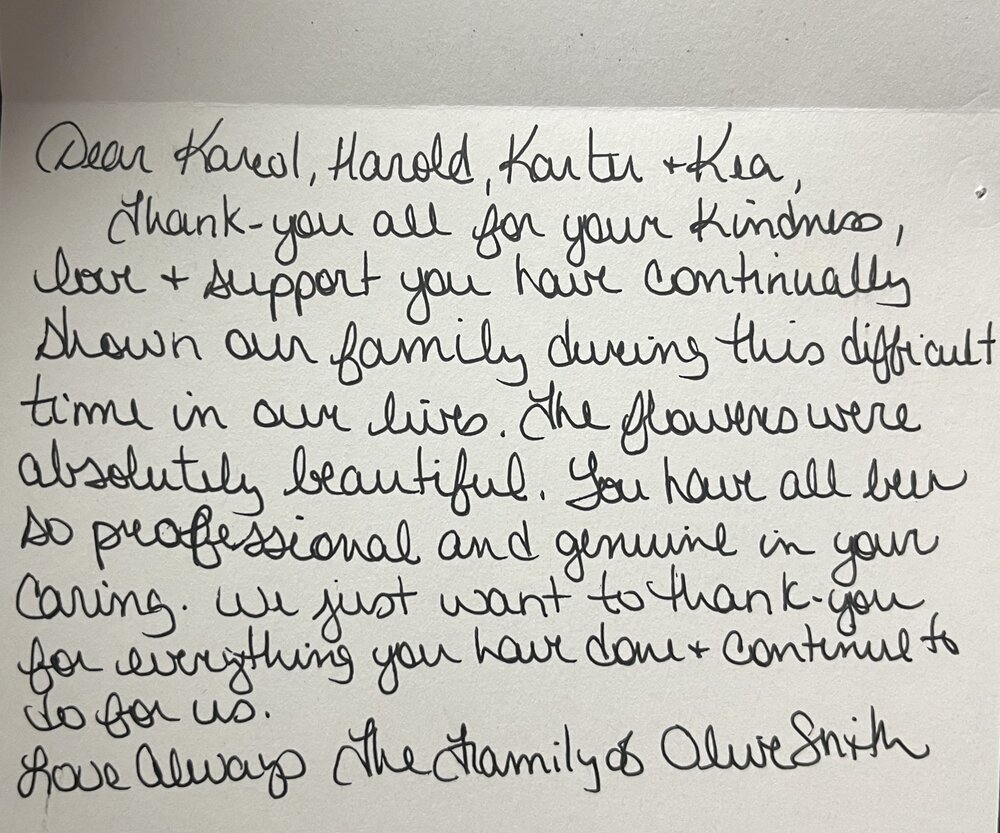 Dear Karol, Harold, Karter + Kea,
Thank-you all for your kindness,
love + support you have continually
shown our family during this difficult
time in our lives. The flowers were
absolutely beautiful. You have all been
so professional and genuine in your
caring. We just want to thank-you
for everything you have done + continue to
do for us.
Love Always The Family of Olive Smith